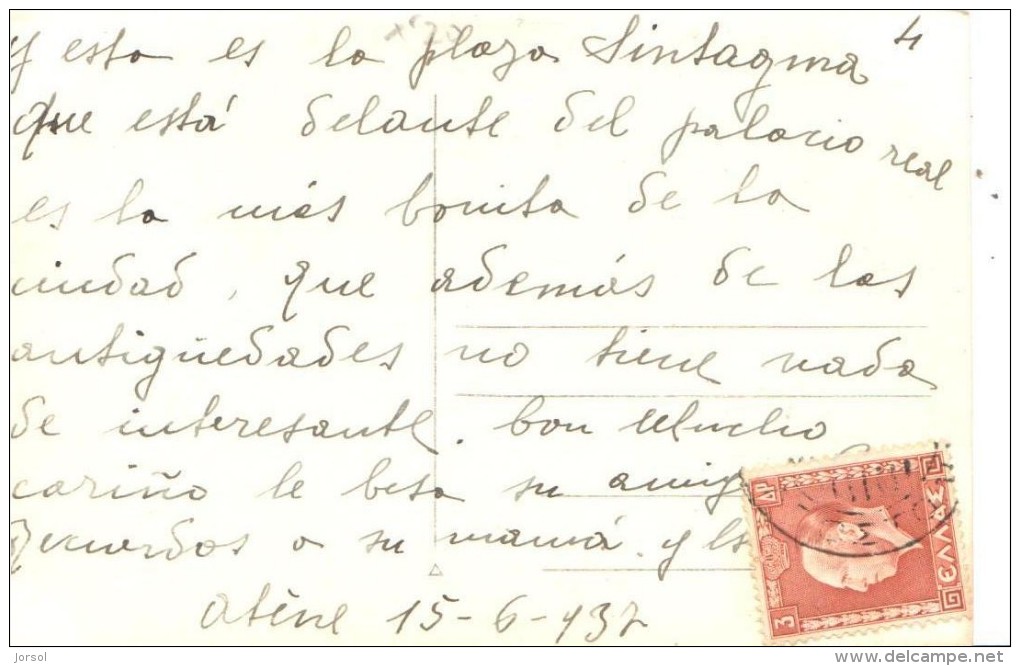 4
y esta es la plaza Sintagma
que está delante del palacio real
es la más bonita de la
ciudad, que además de las
antigüedades no tiene nada
de interesante. Con Mucho
cariño le besa su amig
Recuerdos a su mamá. y
Atène 15-6-937
3 ΔΡ
ΕΛΛΑΣ
Jorsol
www.delcampe.net